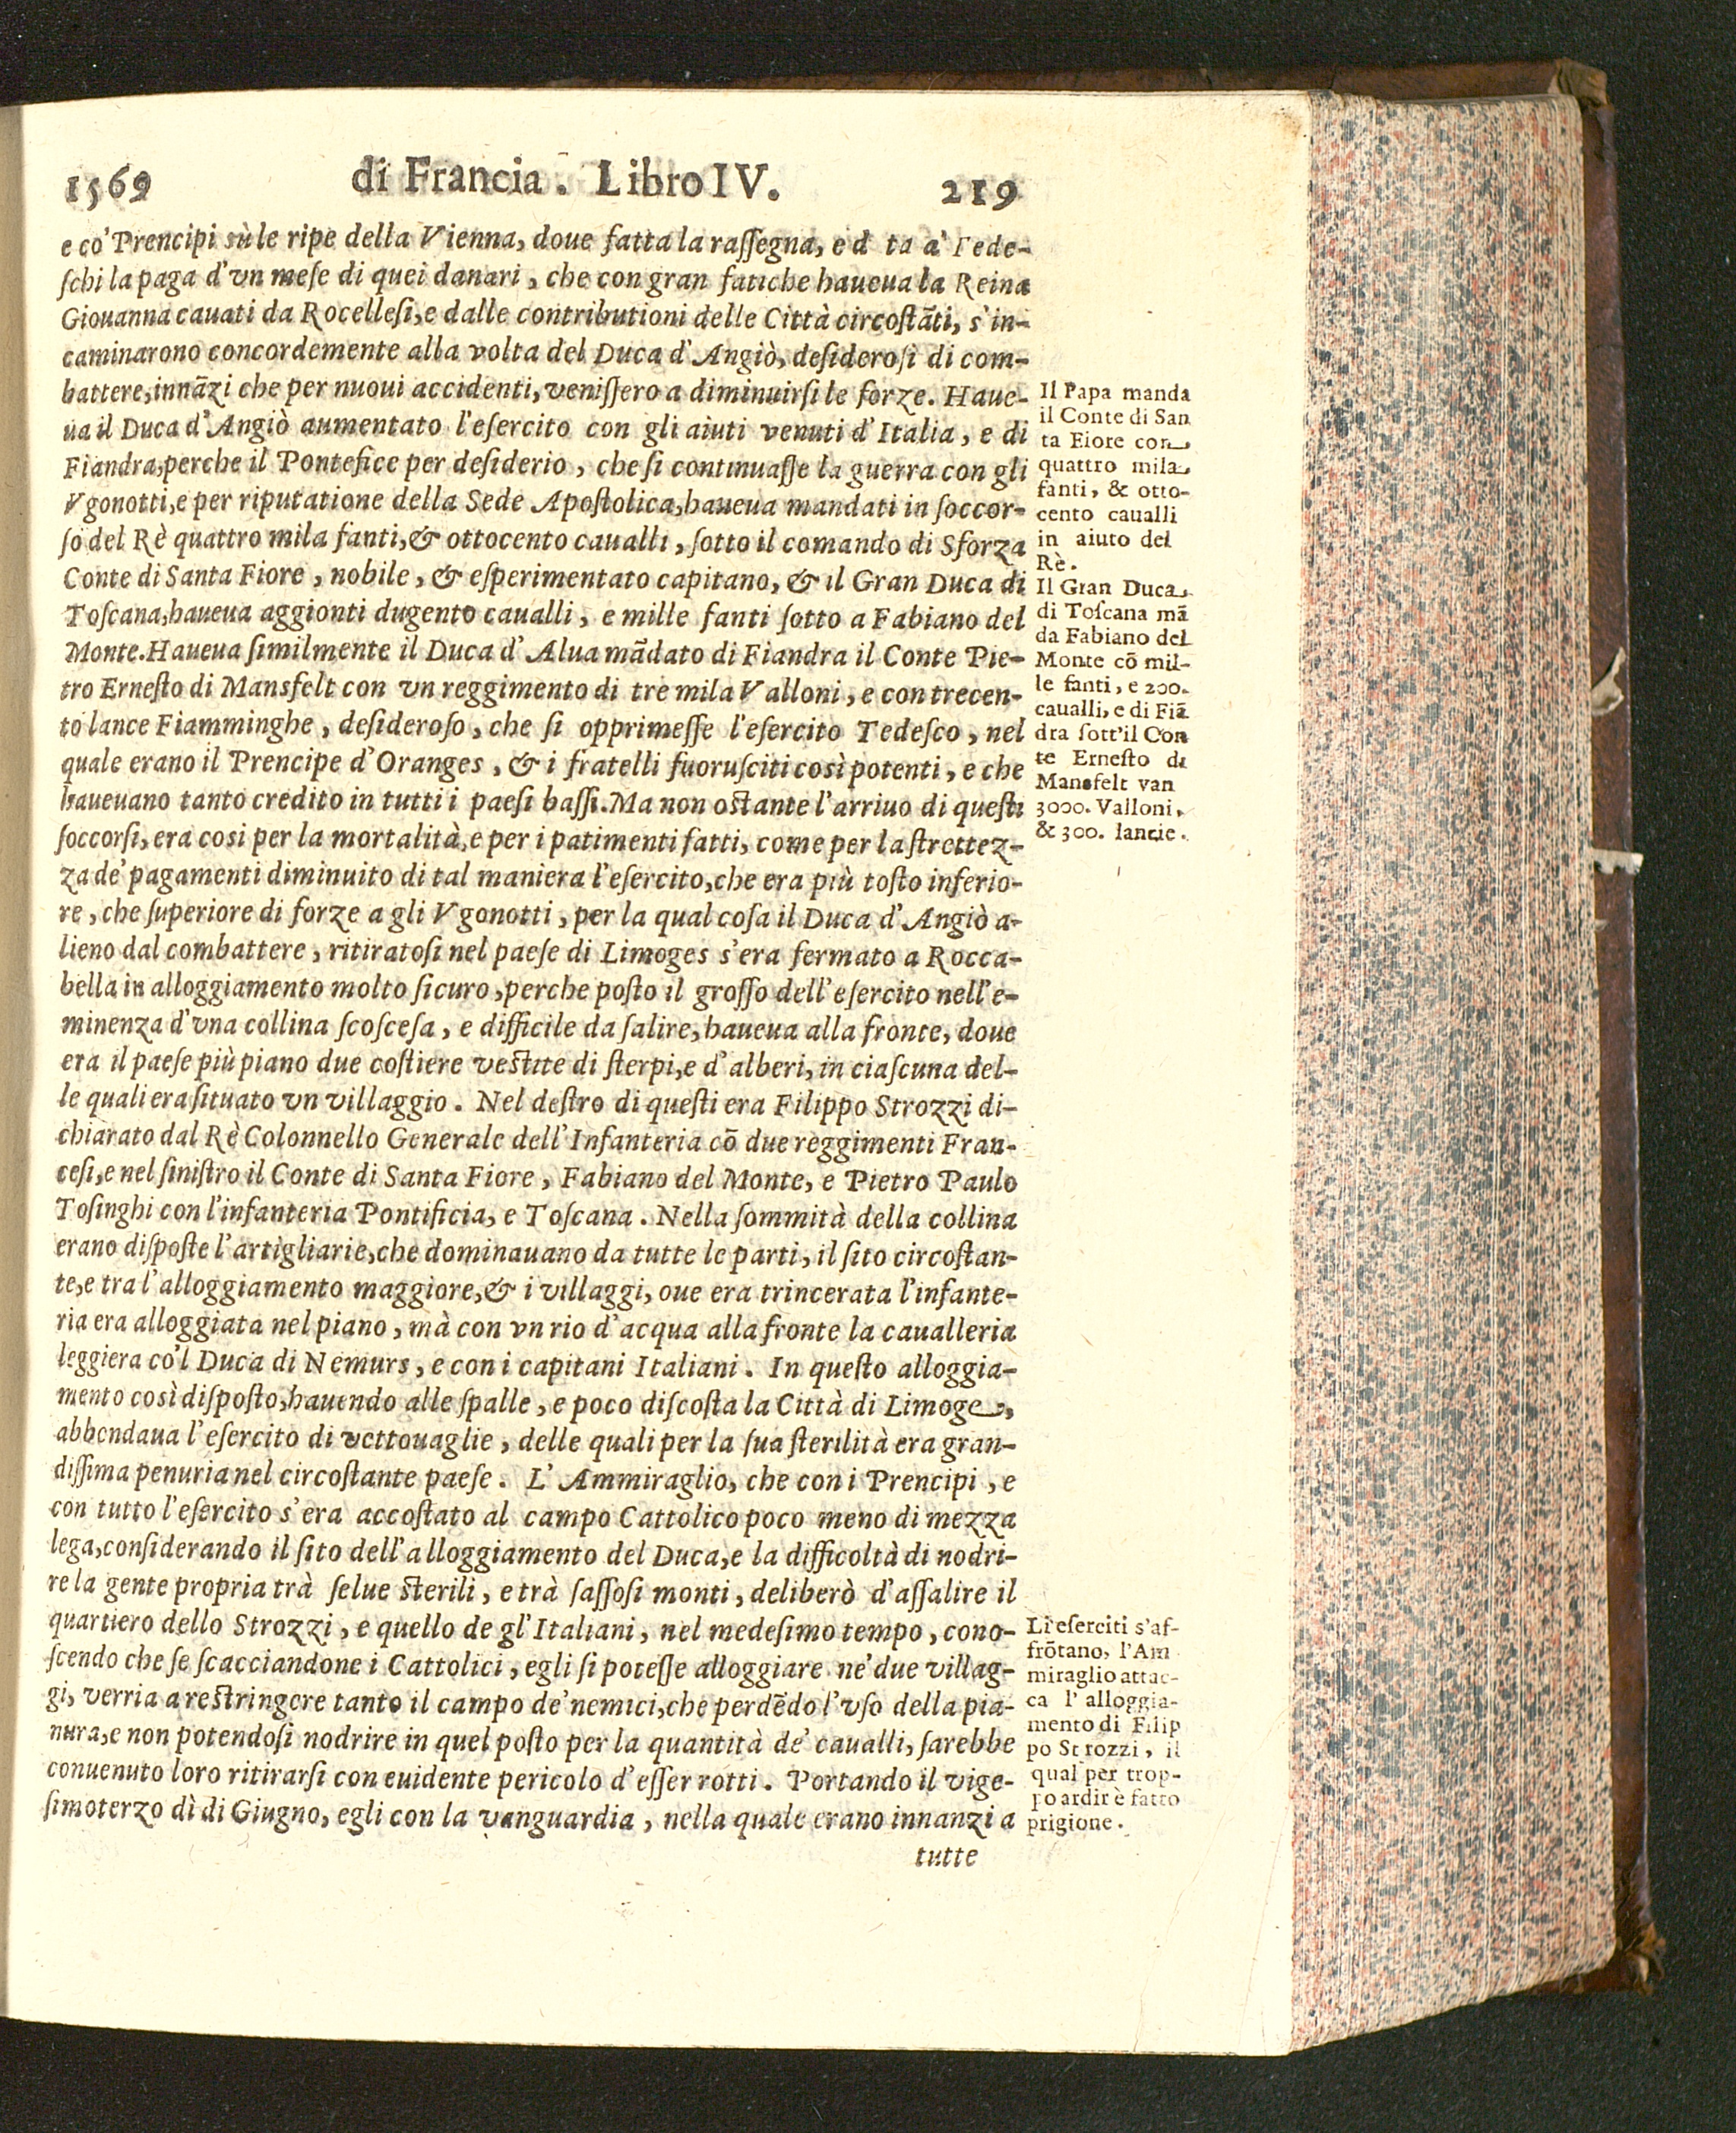 1569 di Francia. Libro IV. 219
e co' Prencipi sù le ripe della Vienna, doue fatta la raſſegna, e d ta a' Tede-
ſchi la paga d'vn meſe di quei danari, che con gran fatiche haueua la Reina
Giouanna cauati da Rocelleſi, e dalle contributioni delle Città circoſtãti, s'in-
caminarono concordemente alla volta del Duca d'Angiò, deſideroſi di com-
battere, innãzi che per nuoui accidenti, veniſſero a diminuirſi le forze. Haue-
ua il Duca d'Angiò aumentato l'eſercito con gli aiuti venuti d'Italia, e di
Fiandra, perche il Pontefice per deſiderio, che ſi continuaſſe la guerra con gli
Vgonotti, e per riputatione della Sede Apoſtolica, haueua mandati in ſoccor-
ſo del Rè quattro mila fanti, & ottocento caualli, ſotto il comando di Sforza
Conte di Santa Fiore, nobile, & eſperimentato capitano, & il Gran Duca di
Toſcana, haueua aggionti dugento caualli, e mille fanti ſotto a Fabiano del
Monte. Haueua ſimilmente il Duca d'Alua mãdato di Fiandra il Conte Pie-
tro Erneſto di Mansfelt con vn reggimento di tre mila Valloni, e con trecen-
to lance Fiamminghe, deſideroſo, che ſi opprimeſſe l'eſercito Tedeſco, nel
quale erano il Prencipe d'Oranges, & i fratelli fuoruſciti così potenti, e che
haueuano tanto credito in tutti i paeſi baſſi. Ma non oſtante l'arriuo di queſti
ſoccorſi, era cosi per la mortalità, e per i patimenti fatti, come per la ſtrettez-
za de' pagamenti diminuito di tal maniera l'eſercito, che era più toſto inferio-
re, che ſuperiore di forze a gli Vgonotti, per la qual coſa il Duca d'Angiò a-
lieno dal combattere, ritiratoſi nel paeſe di Limoges s'era fermato a Rocca-
bella in alloggiamento molto ſicuro, perche poſto il groſſo dell'eſercito nell'e-
minenza d'vna collina ſcoſceſa, e difficile da ſalire, haueua alla fronte, doue
era il paeſe più piano due coſtiere veſtite di ſterpi, e d'alberi, in ciaſcuna del-
le quali era ſituato vn villaggio. Nel deſtro di queſti era Filippo Strozzi di-
chiarato dal Rè Colonnello Generale dell'Infanteria cõ due reggimenti Fran-
ceſi, e nel ſiniſtro il Conte di Santa Fiore, Fabiano del Monte, e Pietro Paulo
Toſinghi con l'infanteria Pontificia, e Toſcana. Nella ſommità della collina
erano diſpoſte l'artigliarie, che dominauano da tutte le parti, il ſito circoſtan-
te, e tra l'alloggiamento maggiore, & i villaggi, oue era trincerata l'infante-
ria era alloggiata nel piano, mà con vn rio d'acqua alla fronte la caualleria
leggiera co'l Duca di Nemurs, e con i capitani Italiani. In queſto alloggia-
mento così diſpoſto, hauendo alle ſpalle, e poco diſcoſta la Città di Limoge,
abbondaua l'eſercito di vettouaglie, delle quali per la ſua ſterilità era gran-
diſſima penuria nel circoſtante paeſe. L'Ammiraglio, che con i Prencipi, e
con tutto l'eſercito s'era accoſtato al campo Cattolico poco meno di mezza
lega, conſiderando il ſito dell'alloggiamento del Duca, e la difficoltà di nodri-
re la gente propria trà ſelue ſterili, e trà ſaſſoſi monti, deliberò d'aſſalire il
quartiero dello Strozzi, e quello de gl'Italiani, nel medeſimo tempo, cono-
ſcendo che ſe ſcacciandone i Cattolici, egli ſi poteſſe alloggiare ne' due villag-
gi, verria a reſtringere tanto il campo de' nemici, che perdẽdo l'vſo della pia-
nura, e non potendoſi nodrire in quel poſto per la quantità de' caualli, ſarebbe
conuenuto loro ritirarſi con euidente pericolo d'eſſer rotti. Portando il vige-
ſimoterzo dì di Giugno, egli con la vanguardia, nella quale erano innanzi a
tutte
Il Papa manda
il Conte di San
ta Fiore con
quattro mila
fanti, & otto-
cento caualli
in aiuto del
Rè.
Il Gran Duca
di Toſcana mã
da Fabiano del
Monte cõ mil-
le fanti, e 200.
caualli, e di Fiã
dra ſott'il Con
te Erneſto di
Mansfelt van
3000. Valloni,
& 300. lancie.
Li eſerciti s'af-
frõtano, l'Am
miraglio attac-
ca l'alloggia-
mento di Filip
po Strozzi, il
qual per trop-
po ardir è fatto
prigione.